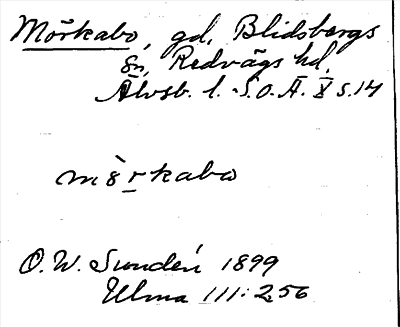 Mörkabo, gd, Blidsbergs
sn, Redvägs hd,
Älvsb. l. S.O.Ä. X s.14
mö̀rkabo
O. W. Sundén 1899
Ulma 111:256